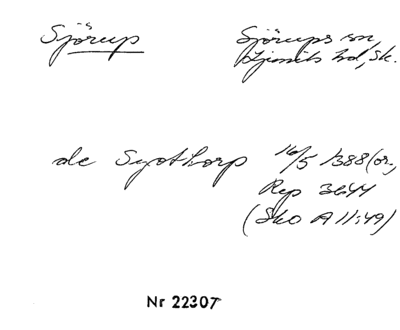 Sjörup Sjörups sn,
Ljunits hd, Sk.
de Syothorp 16/5 1388 (or.,
Rep 3644
(Sko A II:49)
Nr 22307